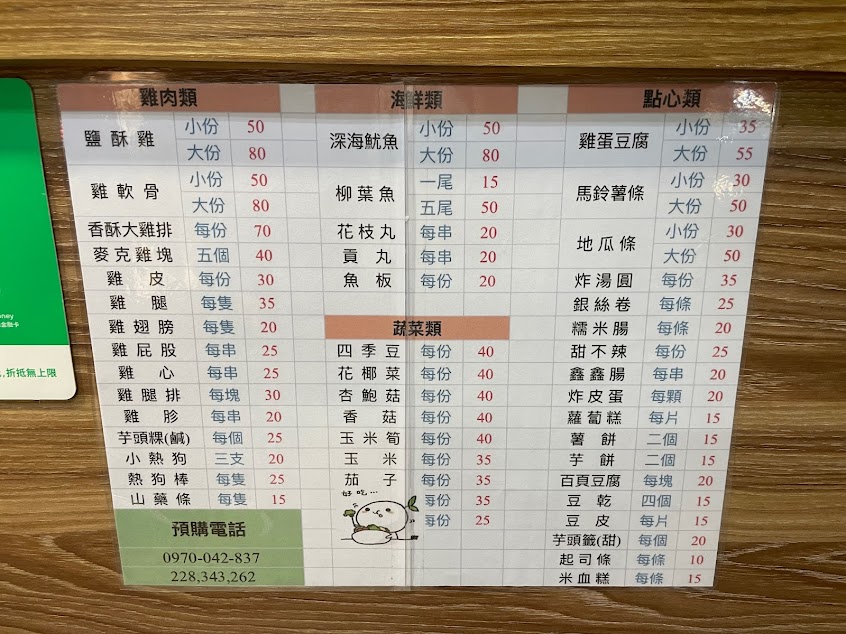 雞肉類
鹽酥雞 小份 50
大份 80
雞軟骨 小份 50
大份 80
香酥大雞排 每份 70
麥克雞塊 五個 40
雞皮 每份 30
雞腿 每隻 35
雞翅膀 每隻 20
雞屁股 每串 25
雞心 每串 25
雞腿排 每塊 30
雞胗 每串 20
芋頭粿(鹹) 每個 25
小熱狗 三支 20
熱狗棒 每隻 25
山藥條 每隻 15
預購電話
0970-042-837
228,343,262
海鮮類
深海魷魚 小份 50
大份 80
柳葉魚 一尾 15
五尾 50
花枝丸 每串 20
貢丸 每串 20
魚板 每份 20
蔬菜類
四季豆 每份 40
花椰菜 每份 40
杏鮑菇 每份 40
香菇 每份 40
玉米筍 每份 40
玉米 每份 35
茄子 每份 35
好吃...
份 35
份 25
點心類
雞蛋豆腐 小份 35
大份 55
馬鈴薯條 小份 30
大份 50
地瓜條 小份 30
大份 50
炸湯圓 每份 35
銀絲卷 每條 25
糯米腸 每條 20
甜不辣 每份 25
鑫鑫腸 每串 20
炸皮蛋 每顆 20
蘿蔔糕 每片 15
薯餅 二個 15
芋餅 二個 15
百頁豆腐 每塊 20
豆乾 四個 15
豆皮 每片 15
芋頭籤(甜) 每個 20
起司條 每條 10
米血糕 每條 15
,折抵無上限